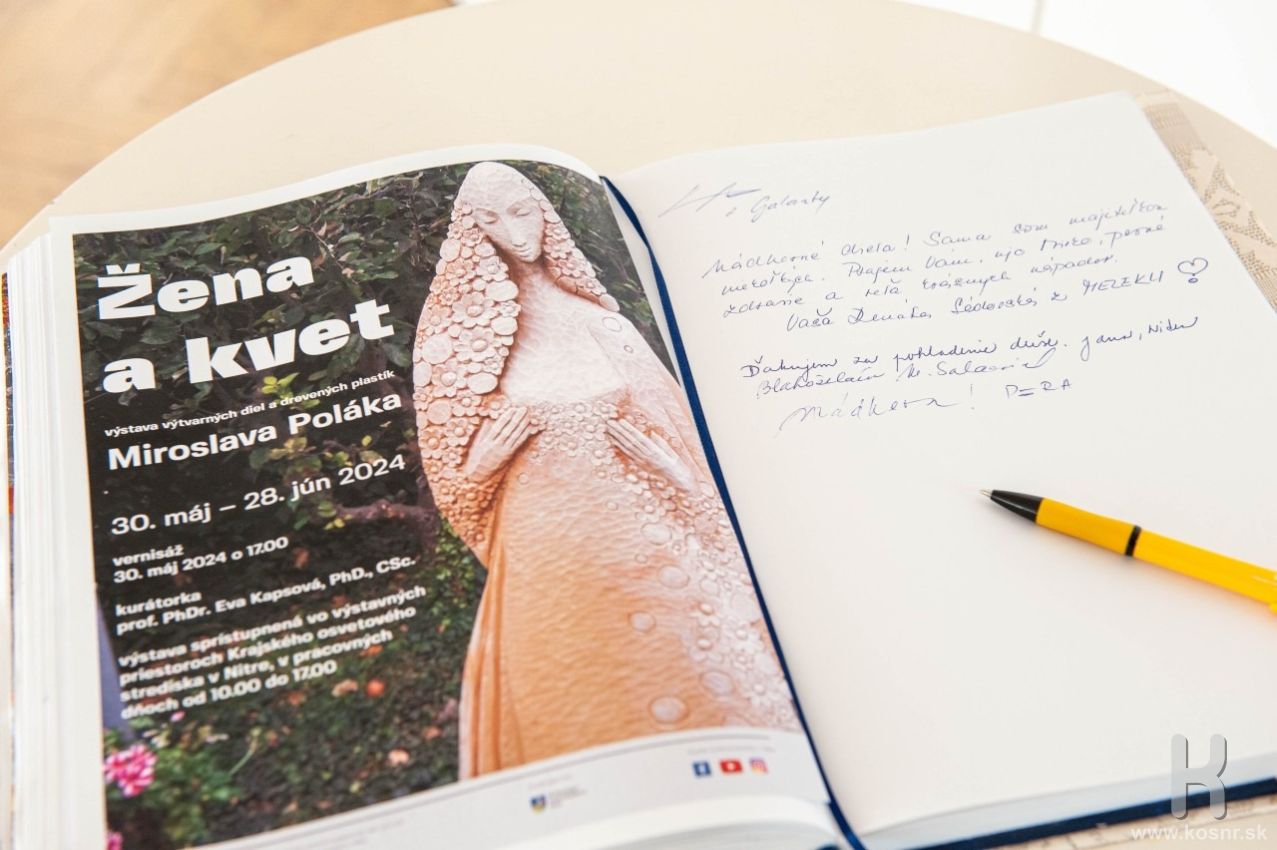 Žena
a kvet
výstava výtvarných diel a drevených plastík
Miroslava Poláka
30. máj – 28. jún 2024
vernisáž
30. máj 2024 o 17.00
kurátorka
prof. PhDr. Eva Kapsová, PhD., CSc.
výstava sprístupnená vo výstavných
priestoroch Krajského osvetového
strediska v Nitre, v pracovných
dňoch od 10.00 do 17.00
z Galanty
Nádherné diela! Sama som majiteľkou
Prajem Vám, ujo Miro, pevné
zdravie a veľa krásnych nápadov.
Vaša Renáta
Ďakujem za pohladenie duše. Jana,
Blahoželám
Nádhera!
www.kosnr.sk